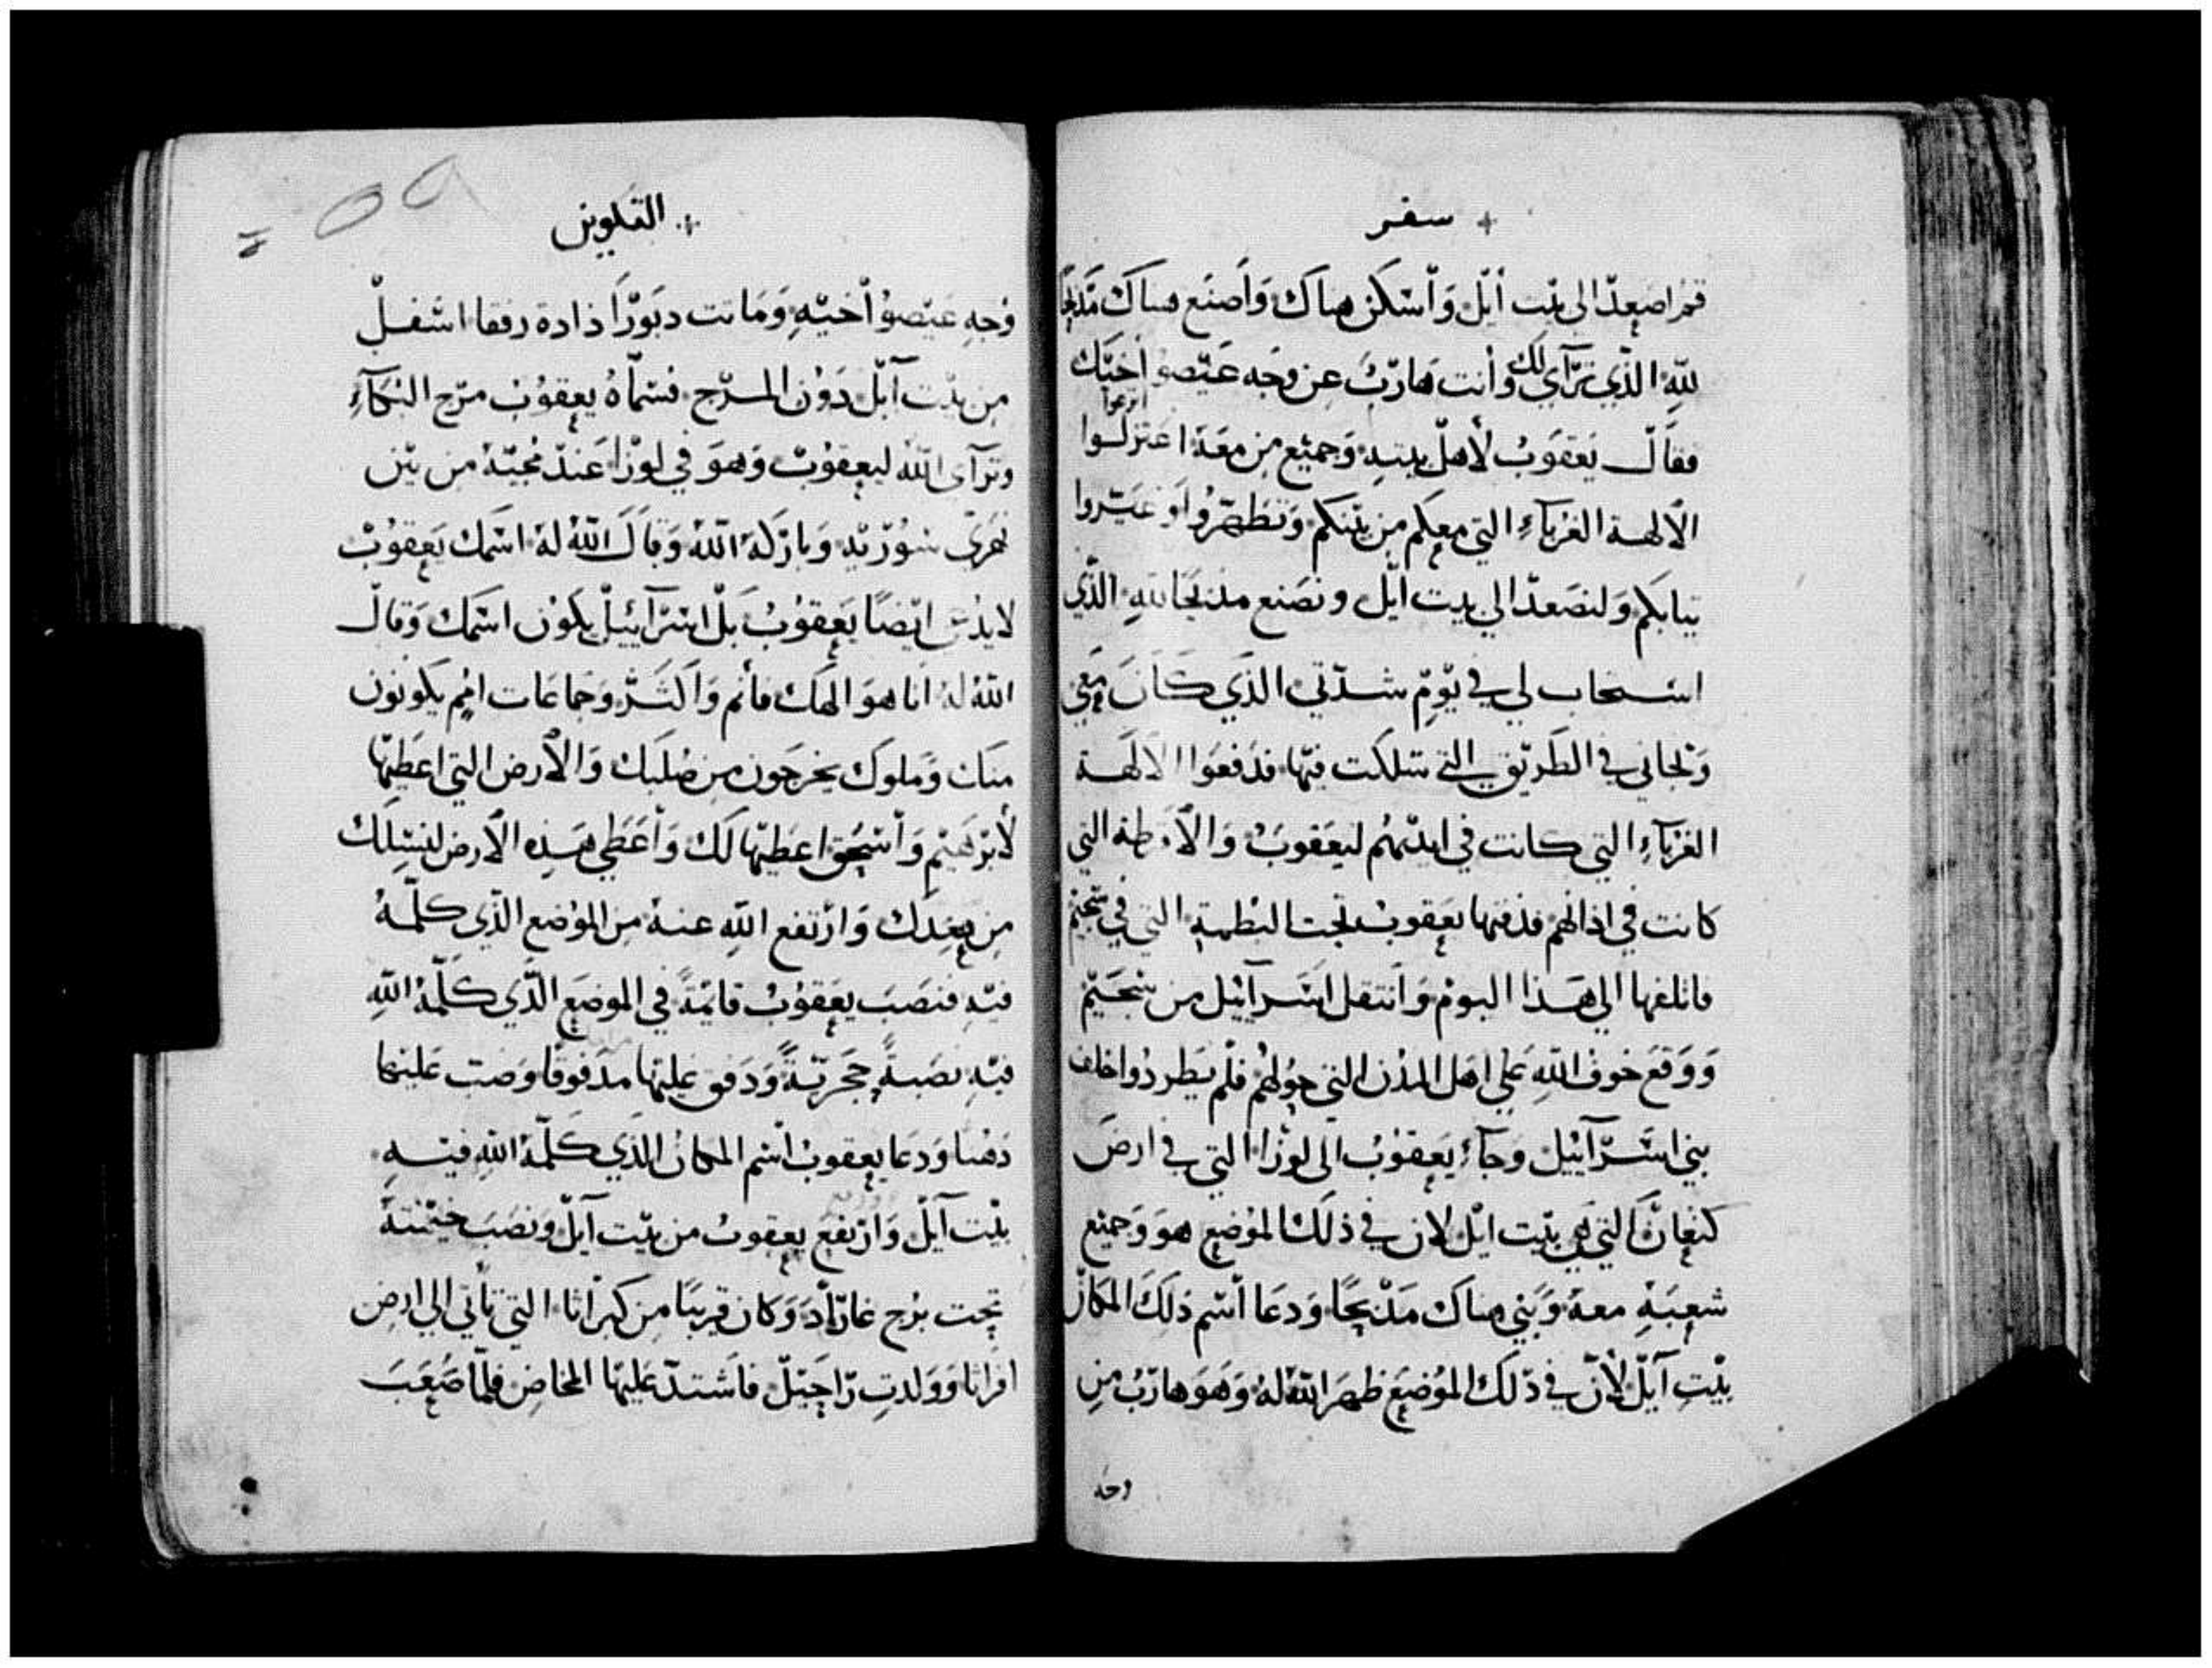 + سفر
قم اصعد الى بيت أيل وأسكن هناك وأصنع هناك مذبحا
لله الذي ترآى لك وأنت هارب عن وجه عيصو أخيك
انزعوا
فقال يعقوب لأهل بيته وجميع من معه اعتزلوا
الالهة الغرباء التي معكم من بينكم وتطهروا وغيروا
ثيابكم ولنصعد الي بيت ايل ونصنع مذبحا لله الذي
استجاب لي في يوم شدتي الذي كان معي
ونجاني في الطريق التي سلكت فيها فدفعوا الالهة
الغرباء التي كانت في ايديهم ليعقوب والأقرطه التي
كانت في اذانهم فدفنها يعقوب تحت البطمة التي في سجيم
فاتلفها الي هذا اليوم وانتقل اسرآئيل من سجيم
ووقع خوف الله علي اهل المدن التي حولهم فلم يطردوا خلف
بني اسرآئيل وجآء يعقوب الى لوزا التي في ارض
كنعان التي هي بيت ايل لان في ذلك الموضع هو وجميع
شعبه معه وبني هناك مذبحا ودعا أسم ذلك المكان
بيت آيل لأن في ذلك الموضع ظهر الله له وهو هارب من
وجه
+ التكوين
وجه عيصو أخيه وماتت دبورا ذادة رفقا اسفل
من بيت آيل دون المرج فسماه يعقوب مرج البكآء
وترآى الله ليعقوب وهو في لوزا عند مجيه من بين
نهري سورية وباركه الله وقال الله له اسمك يعقوب
لا يدعى ايضا يعقوب بل اسرآئيل يكون اسمك وقال
الله له انا هو الهك فأنم وأكثر وجماعات امم يكونون
منك وملوك يخرجون من صلبك والأرض التي اعطيتها
لأبرهيم وأسحق اعطيها لك وأعطي هذه الأرض لنسلك
من بعدك وارتفع الله عنه من الموضع الذي كلمه
فيه فنصب يعقوب قائمة في الموضع الذي كلمه الله
فيه نصبة حجرية ودفق عليها مدفوقا وصب عليها
دهنا ودعا يعقوب أسم المكان الذي كلمه الله فيه
بيت آيل وارتفع يعقوب من بيت آيل ونصب خيمته
تحت برج غاراد وكان قريبا من كبراثا التي تأتي الي ارض
افراثا وولدت راحيل فاشتد عليها المخاض فلما صعب